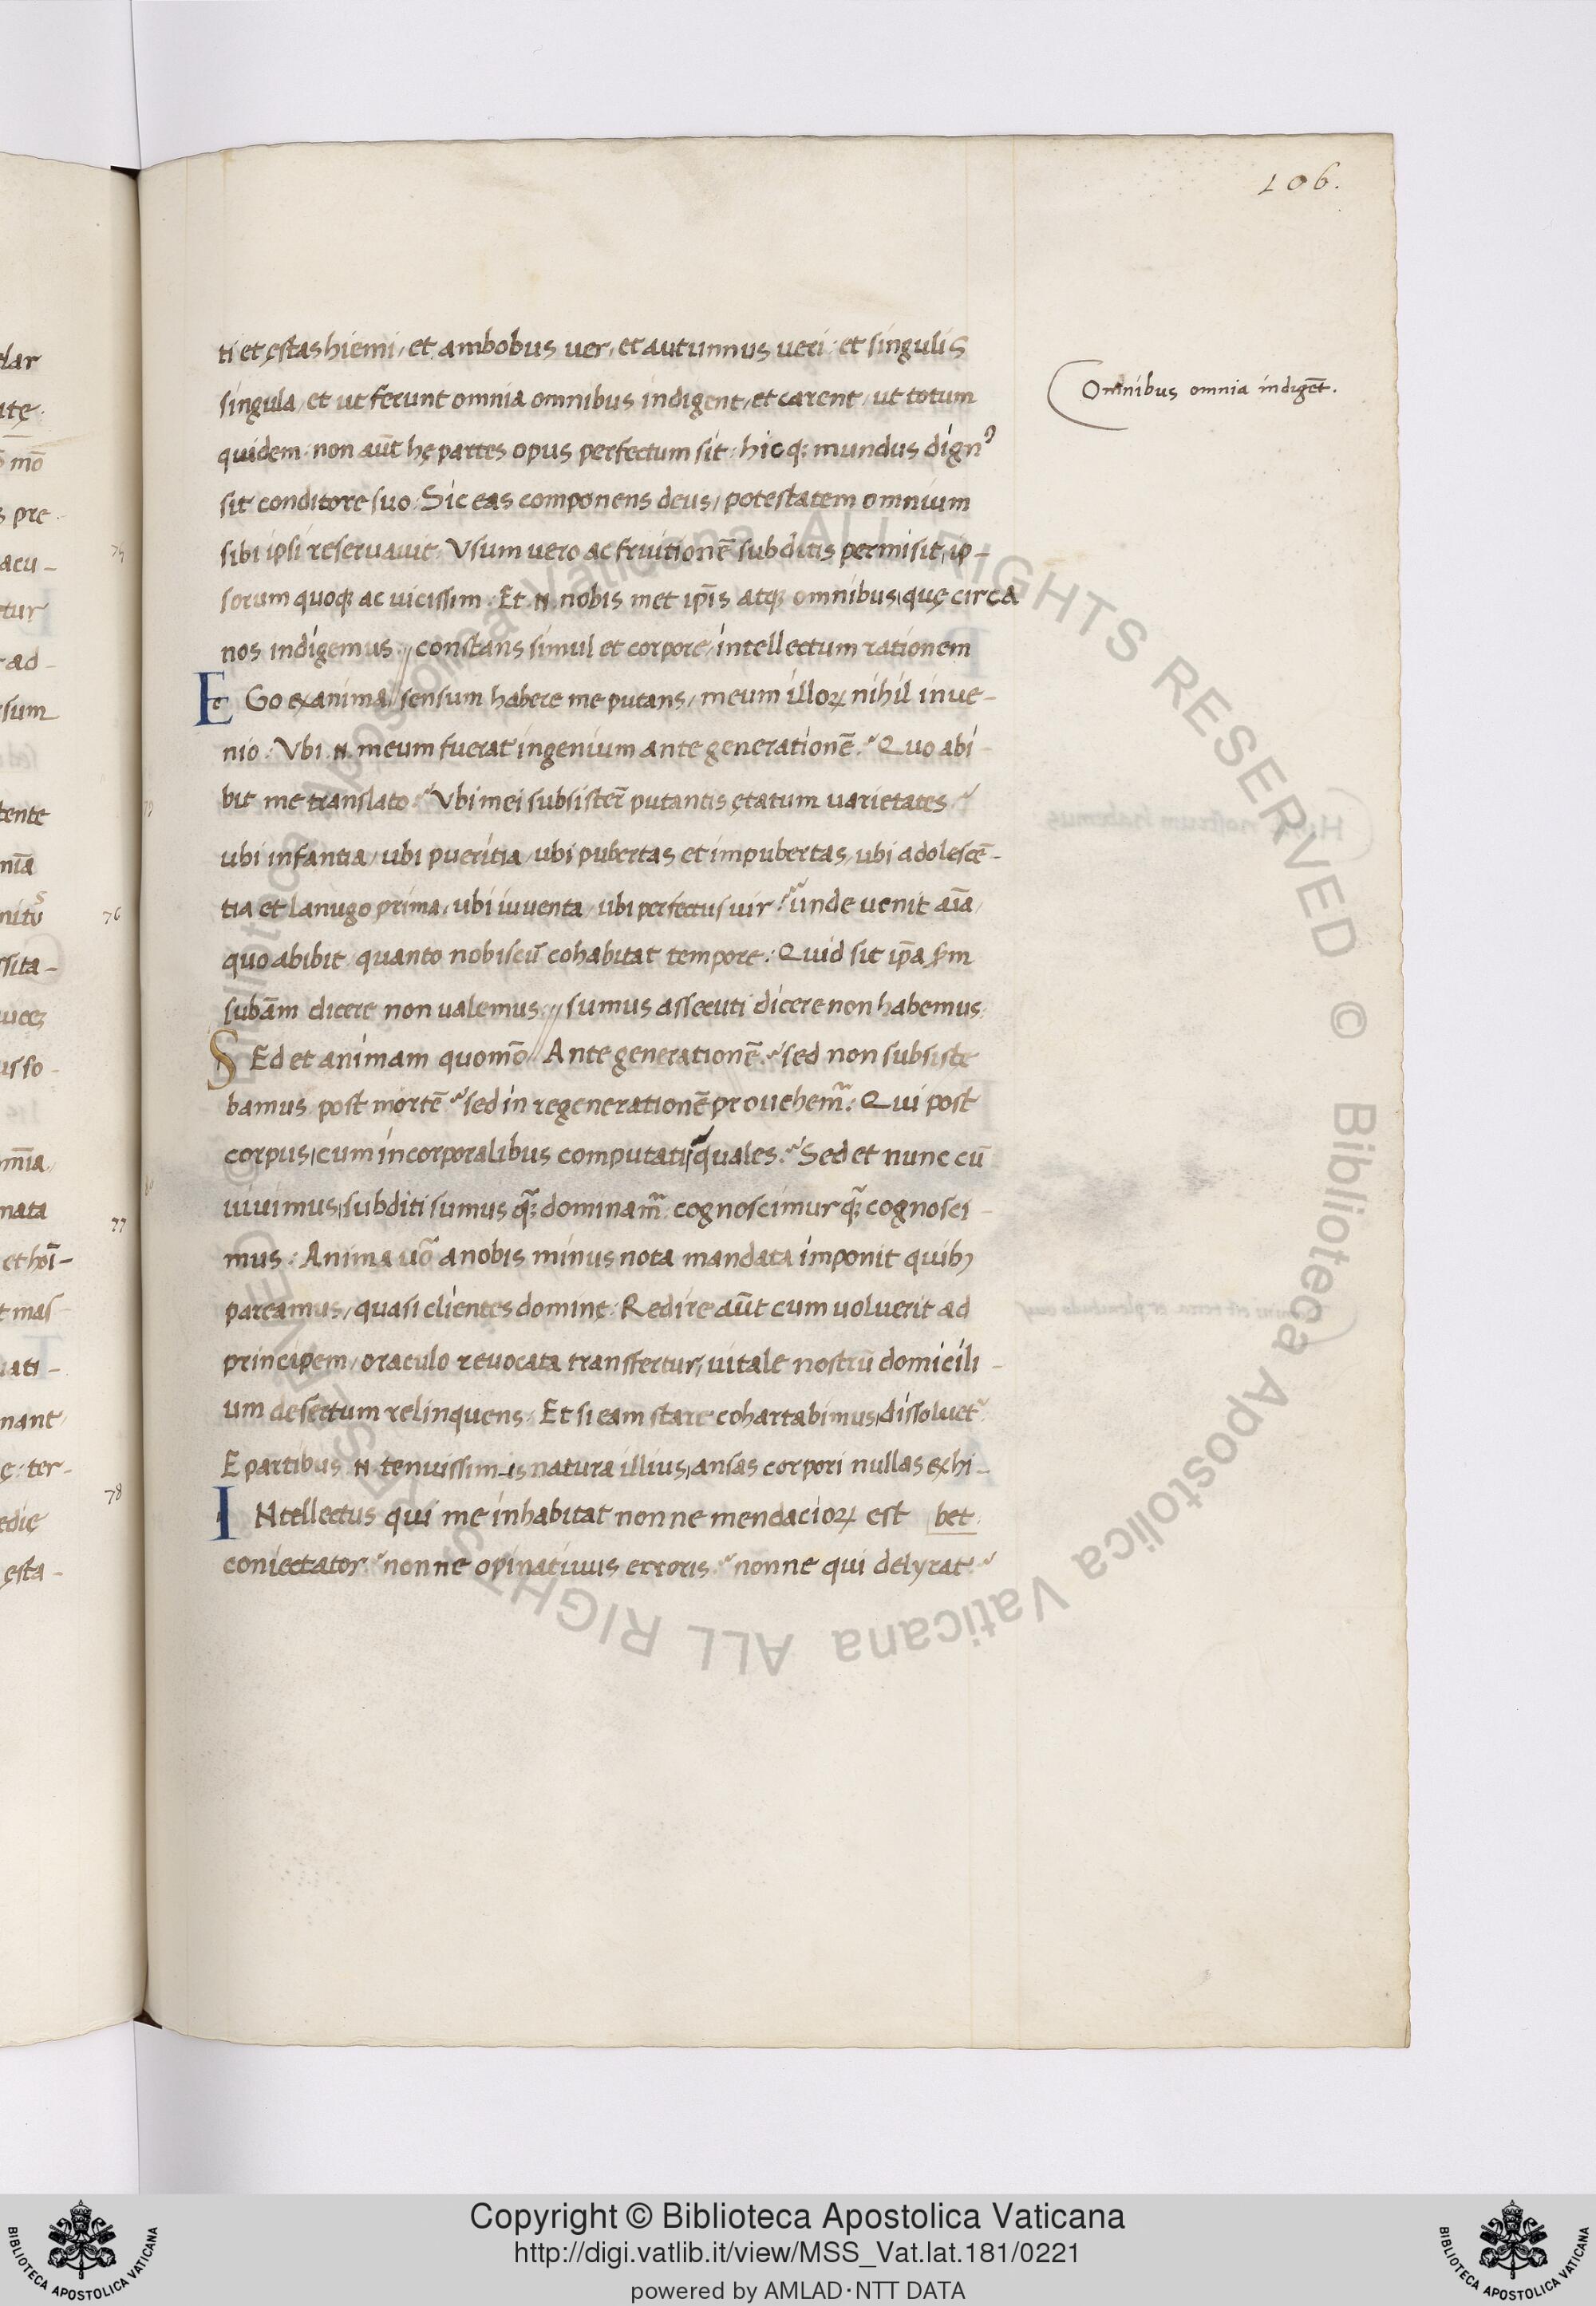 106.
ti et ęstas hiemi, et ambobus uer, et autumnus ueri: et singulis
singula, et ut ferunt omnia omnibus indigent, et carent, ut totum
quidem: non aūt hę partes opus perfectum sit: hicq; mundus dignꝰ
sit conditore suo. Sic eas componens deus, potestatem omnium
sibi ipsi reseruauit. Vsum uero ac fruitionē subditis permisit, ip-
sorum quoq; ac uicissim. Et .N. nobis met ip̄is atq; omnibus, quę circa
nos indigemus. // constans simul et corpore, intellectum rationem
EGo ex anima // sensum habere me putans, meum illoꝝ nihil inue-
nio: Vbi .N. meum fuerat ingenium ante generationē? Quo abi-
bit me translato? Vbi mei subsistere putantis ętatum uarietates?
ubi infantia, ubi pueritia, ubi pubertas et impubertas, ubi adolescē-
tia et lanugo prima, ubi iuuenta, ubi perfectus uir? unde uenit aīa,
quo abibit, quanto nobiscū cohabitat tempore: Quid sit ip̄a
subām dicere non ualemus: // sumus assecuti dicere non habemus.
SEd et animam quomō // Ante generationē? sed non subsiste
bamus. post mortē? sed in regenerationē prouehemr̃: Qui post
corpus, cum incorporalibus computati, quales? Sed et nunc cū
uiuimus, subditi sumus dominamr̃. cognoscimur cognosci-
mus: Anima uō a nobis minus nota mandata imponit quibꝫ
pareamus, quasi clientes dominę: Redire aūt cum uoluerit ad
principem, oraculo reuocata transfertur, uitale nostrū domicili-
um desertum relinquens. Et si eam stare cohartabimus, dissoluetr̃
E partibus .N. tenuissimis natura illius, ansas corpori nullas exhi-
INtellectus qui me inhabitat nonne mendacioꝝ est bet.
coniectator? nonne opinatiuus erroris? nonne qui delyrat?
Omnibus omnia indigēt.
lar
utę.
mō
s pre-
acu-
tur
ad-
sum
tente
nīa
ssita-
us so-
mnīa,
nata
et hoī-
t mas
uati-
nant
ę: ter-
edię
ęsta-
76
77
78
© Biblioteca Apostolica Vaticana ALL RIGHTS RESERVED © Biblioteca Apostolica Vaticana ALL RIGHTS RESERVED
Copyright © Biblioteca Apostolica Vaticana
http://digi.vatlib.it/view/MSS_Vat.lat.181/0221
powered by AMLAD·NTT DATA
BIBLIOTECA APOSTOLICA VATICANA
BIBLIOTECA APOSTOLICA VATICANA